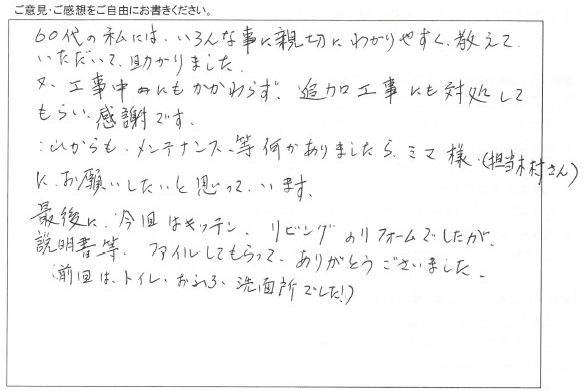 ご意見・ご感想をご自由にお書きください。
60代の私には、いろんな事に親切にわかりやすく、教えて
いただいて、助かりました。
又、工事中にもかかわらず、追加工事にも対処して
もらい、感謝です。
これからも、メンテナンス、等何かありましたら、ミマ様、(担当木村さん)
に、お願いしたいと思って、います。
最後に、今回はキッチン、リビングのリフォームでしたが、
説明書等、ファイルしてもらって、ありがとうございました。
(前回は、トイレ、おふろ、洗面所でした!)